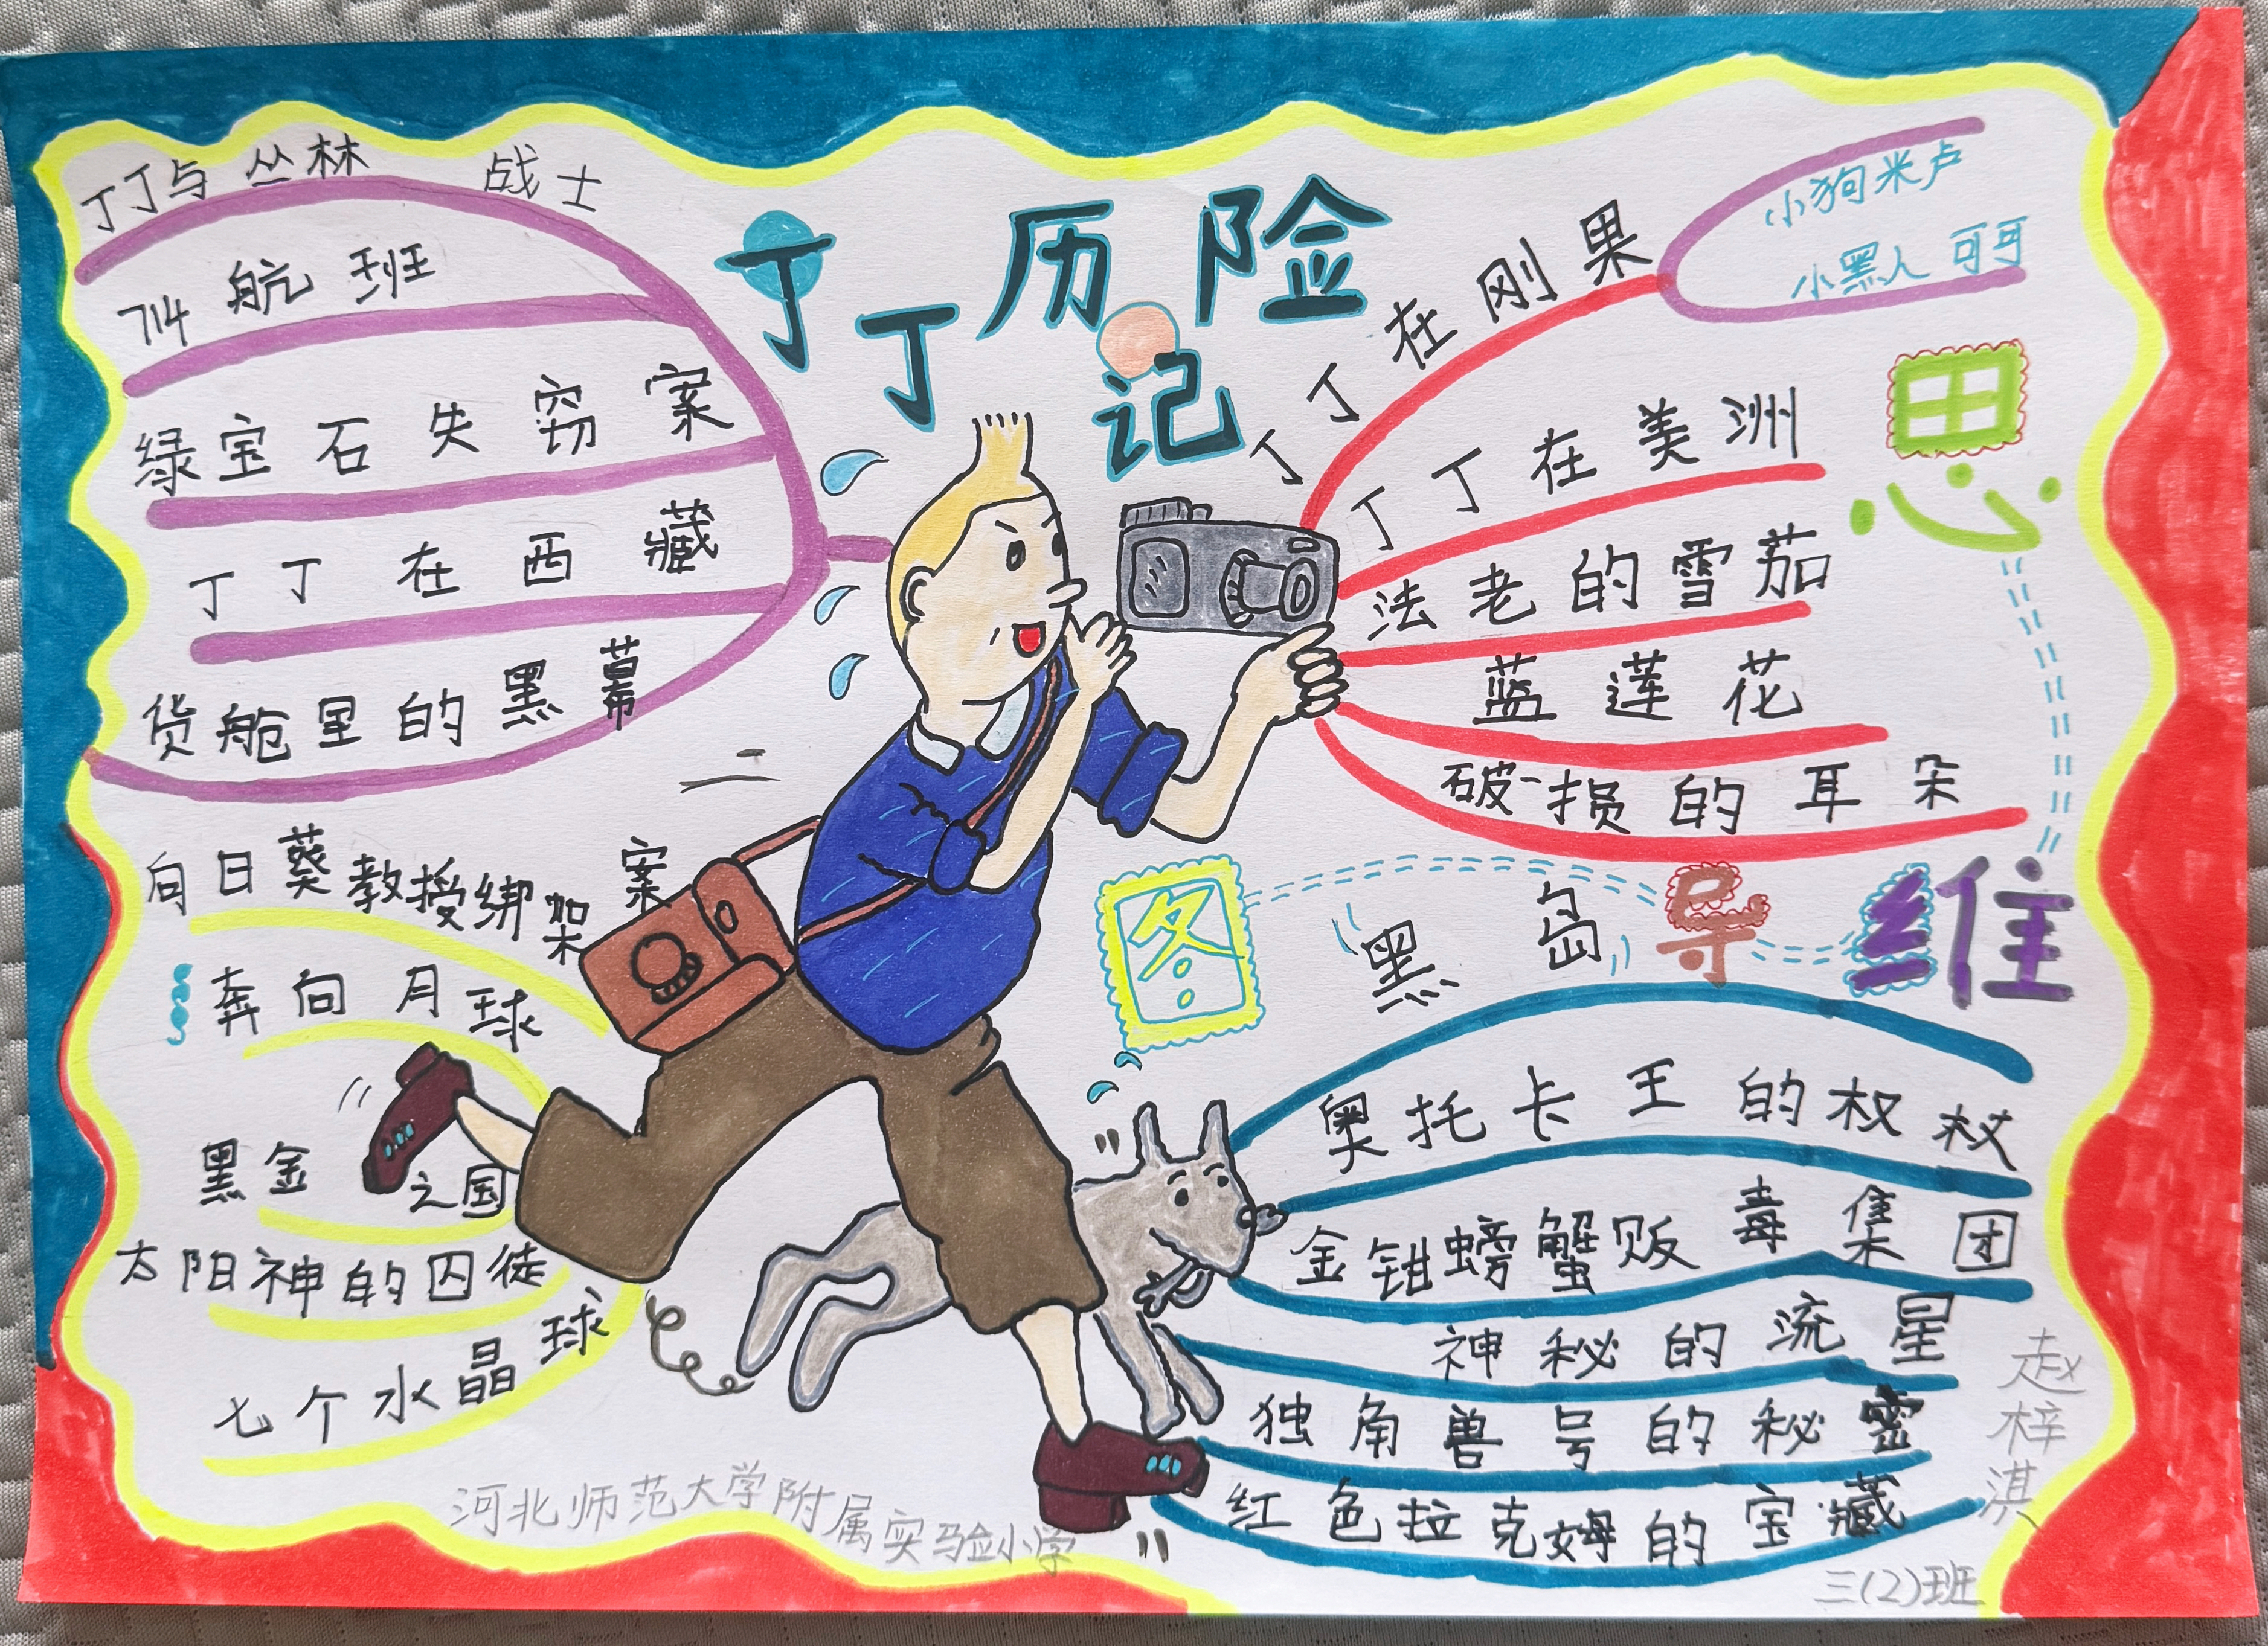 丁丁历险记
丁丁与丛林战士
714航班
绿宝石失窃案
丁丁在西藏
货舱里的黑幕
向日葵教授绑架案
奔向月球
黑金之国
太阳神的囚徒
七个水晶球
丁丁在刚果
小狗米卢
小黑人可可
丁丁在美洲
法老的雪茄
蓝莲花
破损的耳朵
思维导图
黑岛
奥托卡王的权杖
金钳螃蟹贩毒集团
神秘的流星
独角兽号的秘密
红色拉克姆的宝藏
河北师范大学附属实验小学
赵梓淇
三(2)班